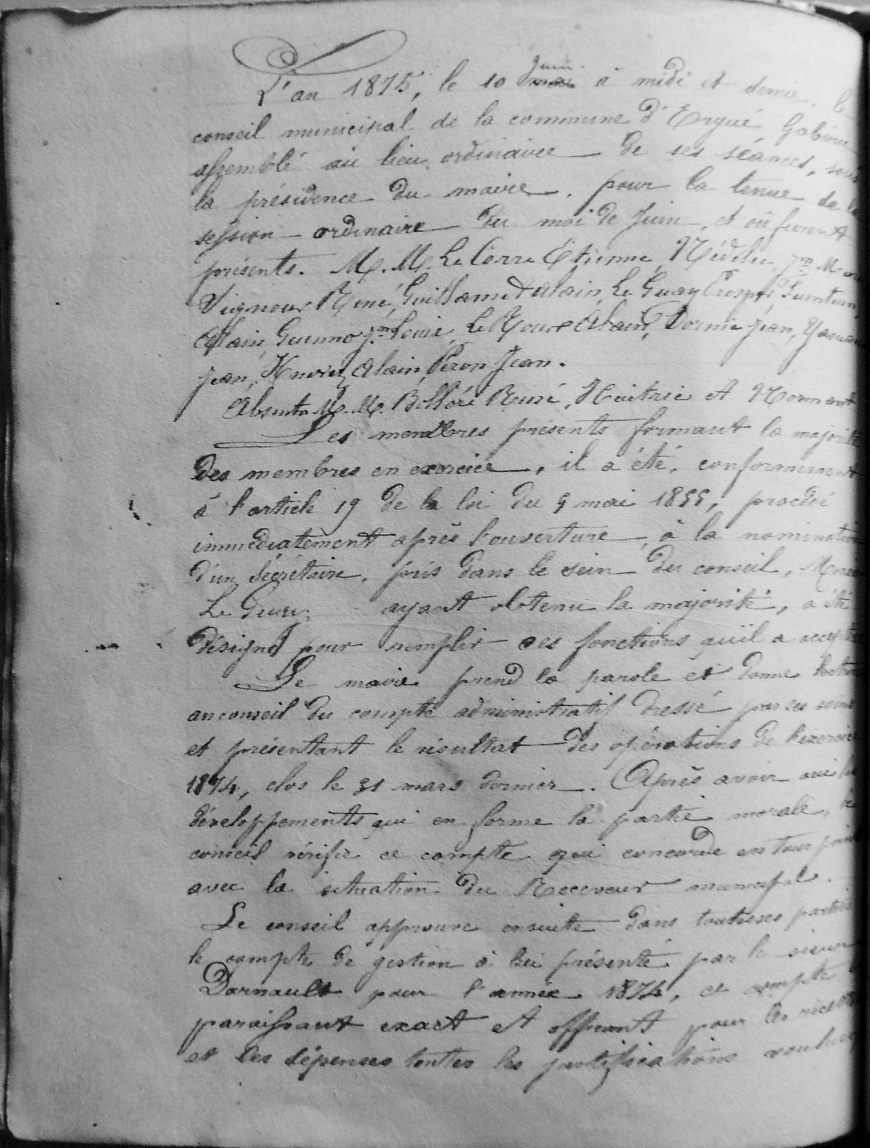 Juin
L'an 1875, le 10 mai à midi et demie, le
conseil municipal de la commune d'Ergué Gabéric
assemblé au lieu ordinaire de ses séances, sous
la présidence du maire, pour la tenue de la
session ordinaire du moi de Juin, et où furent
présents. M.M. Le Corre Etienne, Nédélec
Seigneur René, Guillaume Alain, Le Guay
Alain Guenno Louis, Le Roux Alain, Jean,
Jean, Alain, Peron Jean.
Absents M.M. Bolloré René, et
Les membres présents formant la majorité
des membres en exercice, il a été, conformement
à l'article 19 de la loi du 9 mai 1855, procédé
immédiatement après l'ouverture, à la nomination
d'un Secrétaire, pris dans le sein du conseil,
Le ayant obtenu la majorité, a été
désigné pour remplir ces fonctions qu'il a accepté
Le maire prend la parole et donne lecture
au conseil du compte administratif dressé par ses soins
et présentant le résultat des opérations de l'exercice
1874, clos le 31 mars dernier. Après avoir ouï les
développements qui en forme la partie morale, le
conseil vérifie ce compte qui concorde en tous points
avec la situation du Receveur municipal.
Le conseil approuve ensuite dans toutes ses parties
le compte de gestion à lui présenté par le sieur
Darnault pour l'année 1874, ce compte
paraissant exact et offrant pour les recettes
et les dépenses toutes les justifications voulues